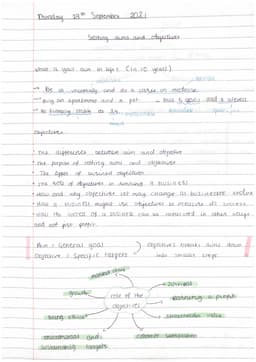 Thursday 23rd September 2021
Setting aims and objectives
What is your aim in life? (in 10 years)
Be at university and do a course in medicine
Buy an apartment and a pet
Objectives
The difference between aim and objective
The purpose of setting aims and objectives
The types of business objectives
The role of objectives in running a business
How and why objectives set may change as businesses evolve
How a business might use objectives to measure its success
How the success of a business can be measured in other ways
and not just profit.
Aim: General goal
Objective: Specific targets
Objectives breaks aims down
into smaller steps
market share
growth
survival
role of the
objectives
being ethical
shareholder value
customer satisfaction
environmental and
sustainability targets